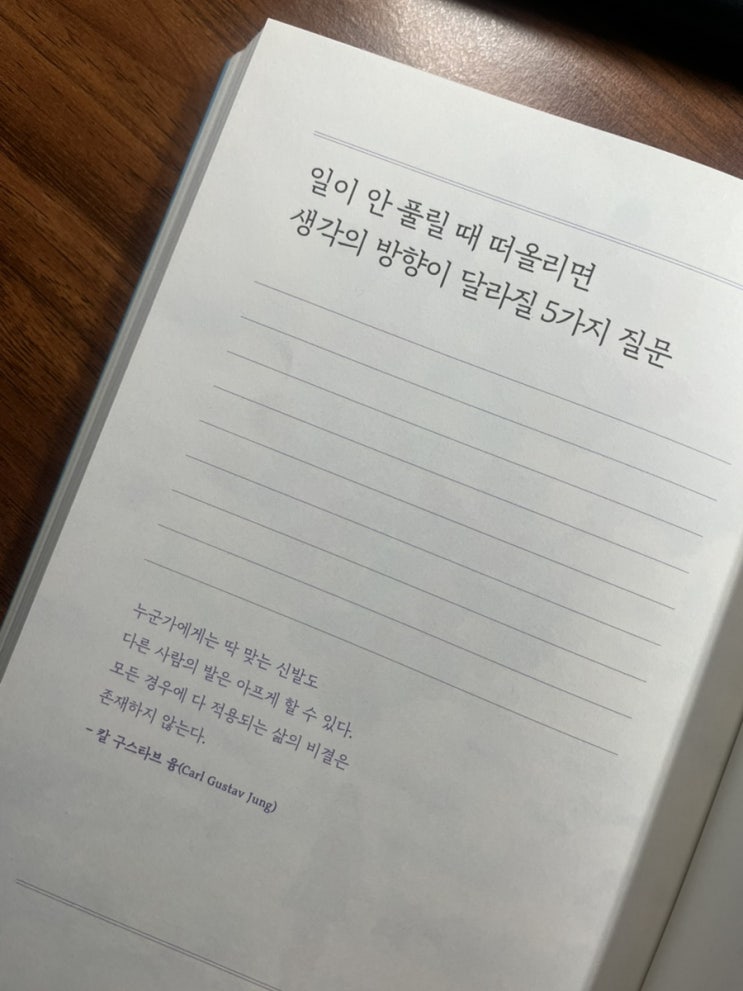 일이 안 풀릴 때 떠올리면
생각의 방향이 달라질 5가지 질문
누군가에게는 딱 맞는 신발도
다른 사람의 발은 아프게 할 수 있다.
모든 경우에 다 적용되는 삶의 비결은
존재하지 않는다.
- 칼 구스타브 융(Carl Gustav Jung)